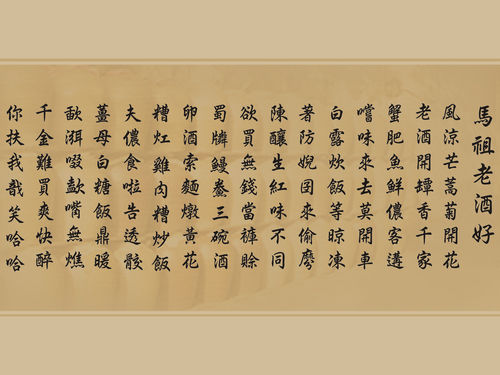 馬祖老酒好
風涼芒蒿菊開花
老酒開罈香千家
蟹肥魚鮮儂客遘
嚐味來去莫開車
白露炊飯等晾凍
著防婗囝來偷
陳釀生紅味不同
欲買無錢當褲賒
蜀鱗鰻鯗三碗酒
卵酒索麵燉黃花
糟灴雞肉糟炒飯
夫儂食啦告透骹
薑母白糖飯鼎暖
歃渳啜歖嘴無燋
千金難買爽快醉
你扶我戠笑哈哈